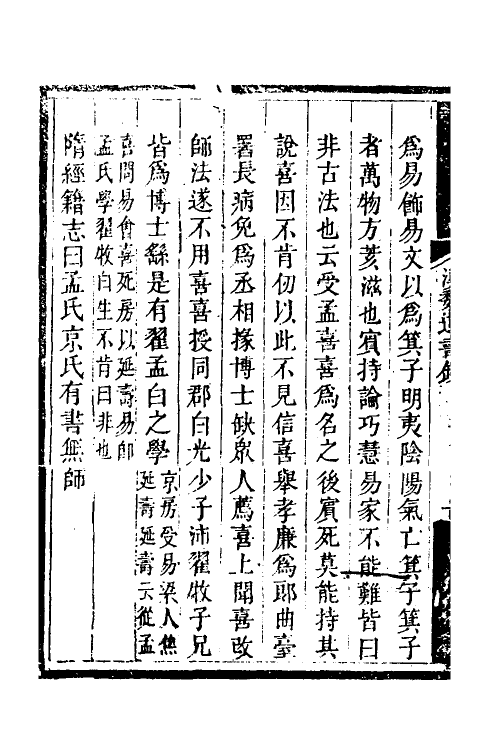 爲易飾易文以爲箕子明夷陰陽氣亡箕子箕子
者萬物方荄滋也賓持論巧慧易家不能難皆曰
非古法也云受孟喜喜爲名之後賓死莫能持其
說喜因不肯仞以此不見信喜舉孝廉爲郎曲臺
署長病免爲丞相掾博士缺衆人薦喜上聞喜改
師法遂不用喜喜授同郡白光少子沛翟牧子兄
皆爲博士繇是有翟孟白之學
京房受易梁人焦
延壽延壽云從孟
喜問易會喜死房以延壽易卽
孟氏學翟牧白生不肯曰非也
隋經籍志曰孟氏京氏有書無師